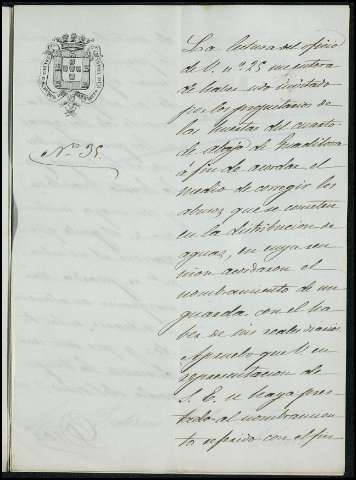 Nº 35.
La lectura del oficio
de V. nº 25 me entera
de haber sido invitado
por los propietarios de
las huertas del cuarto
de abajo de
á fin de acordar el
medio de corregir los
abusos que se cometen
en la distribucion de
aguas, en cuya reu-
nion acordaron el
nombramiento de un
guarda con el ha-
ber de seis reales diarios
Apruebo que V. en
representacion de
S. E. se haya pres-
tado al nombramien-
to referido con el fin